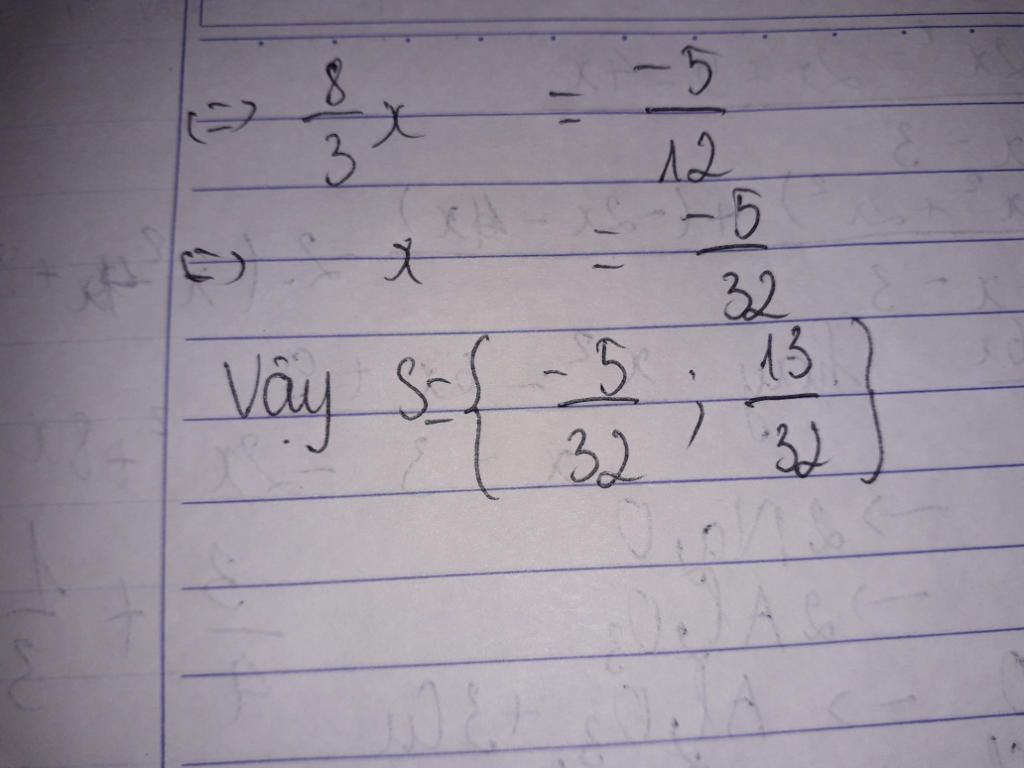 ⇔ 8/3 x = -5/12
⇔ x = -5/32
Vậy S={ -5/32 ; 13/32 }